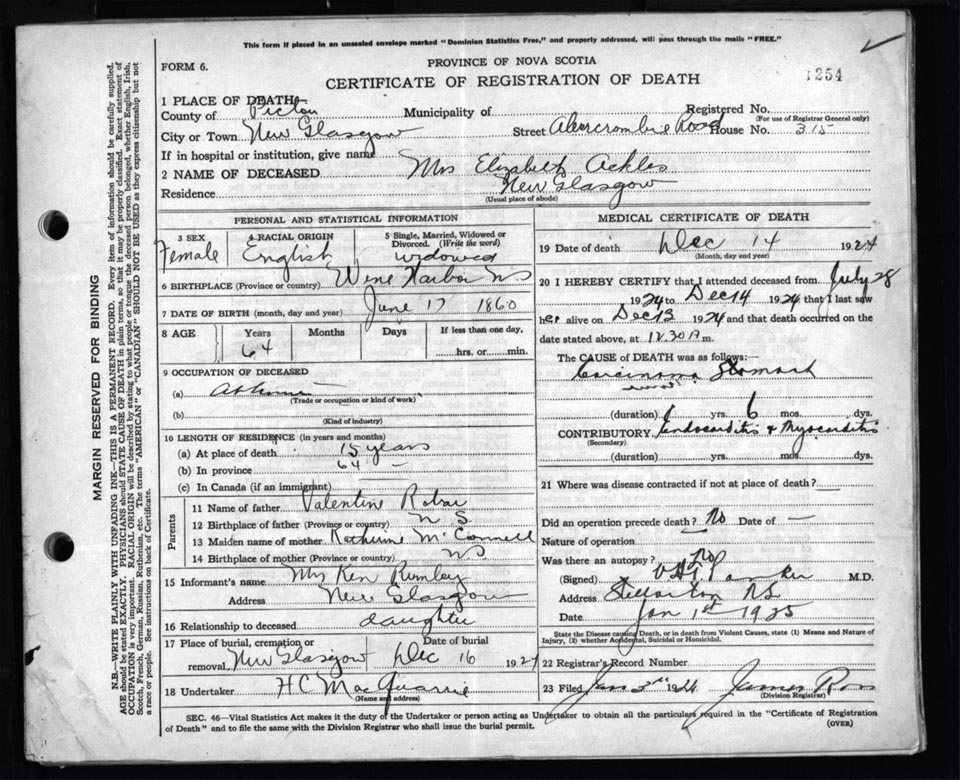 This form if placed in an unsealed envelope marked "Dominion Statistics Free," and properly addressed, will pass through the mails "FREE."
FORM 6.
PROVINCE OF NOVA SCOTIA
CERTIFICATE OF REGISTRATION OF DEATH
1254
1 PLACE OF DEATH
County of Pictou Municipality of Registered No.
(For use of Registrar General only)
City or Town New Glasgow Street Abercrombie Road House No. 315
If in hospital or institution, give name
2 NAME OF DECEASED Mrs Elizabeth Ackles
Residence New Glasgow
(Usual place of abode)
PERSONAL AND STATISTICAL INFORMATION
3 SEX 4 RACIAL ORIGIN 5 Single, Married, Widowed or Divorced. (Write the word)
Female English widowed
6 BIRTHPLACE (Province or country) Wine Harbor NS
7 DATE OF BIRTH (month, day and year) June 17 1860
8 AGE Years Months Days If less than one day,
64 hrs. or min.
9 OCCUPATION OF DECEASED
(a) At home
(Trade or occupation or kind of work)
(b)
(Kind of industry)
10 LENGTH OF RESIDENCE (in years and months)
(a) At place of death 15 years
(b) In province 64 —
(c) In Canada (if an immigrant)
Parents
11 Name of father Valentine Robar
12 Birthplace of father (Province or country) N S
13 Maiden name of mother Katherine McConnell
14 Birthplace of mother (Province or country) NS
15 Informant's name Mrs Ken Rumley
Address New Glasgow
16 Relationship to deceased daughter
17 Place of burial, cremation or removal New Glasgow Date of burial Dec 16 1924
18 Undertaker H C MacQuarrie
(Name and address)
MEDICAL CERTIFICATE OF DEATH
19 Date of death Dec 14 1924
(Month, day and year)
20 I HEREBY CERTIFY that I attended deceased from July 28
1924 to Dec 14 1924 that I last saw
her alive on Dec 13 1924 and that death occurred on the
date stated above, at 12.30 m.
The CAUSE of DEATH was as follows:—
Carcinoma Stomach
(duration) yrs. 6 mos. dys.
CONTRIBUTORY Endocarditis & Myocarditis
(Secondary)
(duration) yrs. mos. dys.
21 Where was disease contracted if not at place of death?
Did an operation precede death? No Date of —
Nature of operation
Was there an autopsy? No
(Signed) M.D.
Address Stellarton NS
Date Jan 1st 1925
State the Disease causing Death, or in death from Violent Causes, state (1) Means and Nature of Injury, (2) whether Accidental, Suicidal or Homicidal.
22 Registrar's Record Number
23 Filed Jan 1924 James Ross
(Division Registrar)
SEC. 46—Vital Statistics Act makes it the duty of the Undertaker or person acting as Undertaker to obtain all the particulars required in the "Certificate of Registration
of Death" and to file the same with the Division Registrar who shall issue the burial permit.
(OVER)
MARGIN RESERVED FOR BINDING
N.B.—WRITE PLAINLY WITH UNFADING INK—THIS IS A PERMANENT RECORD. Every item of information should be carefully supplied.
AGE should be stated EXACTLY. PHYSICIANS should STATE CAUSE OF DEATH in plain terms, so that it may be properly classified. Exact statement of
OCCUPATION is very important. RACIAL ORIGIN will be described by stating to what people or tongue the deceased person belonged, whether English, Irish,
Scotch, French, German, Russian, Ruthenian, etc. The terms "AMERICAN" or "CANADIAN" SHOULD NOT BE USED as they express citizenship but not
a race or people. See instructions on back of Certificate.